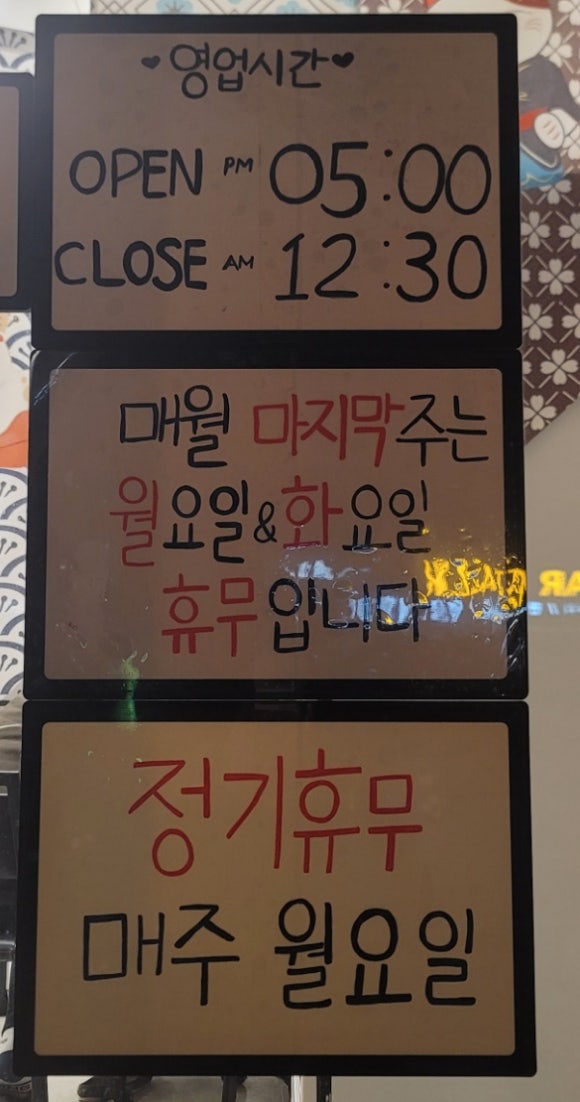 ♥영업시간♥
OPEN PM 05:00
CLOSE AM 12:30
매월 마지막주는
월요일&화요일
휴무입니다
정기휴무
매주 월요일